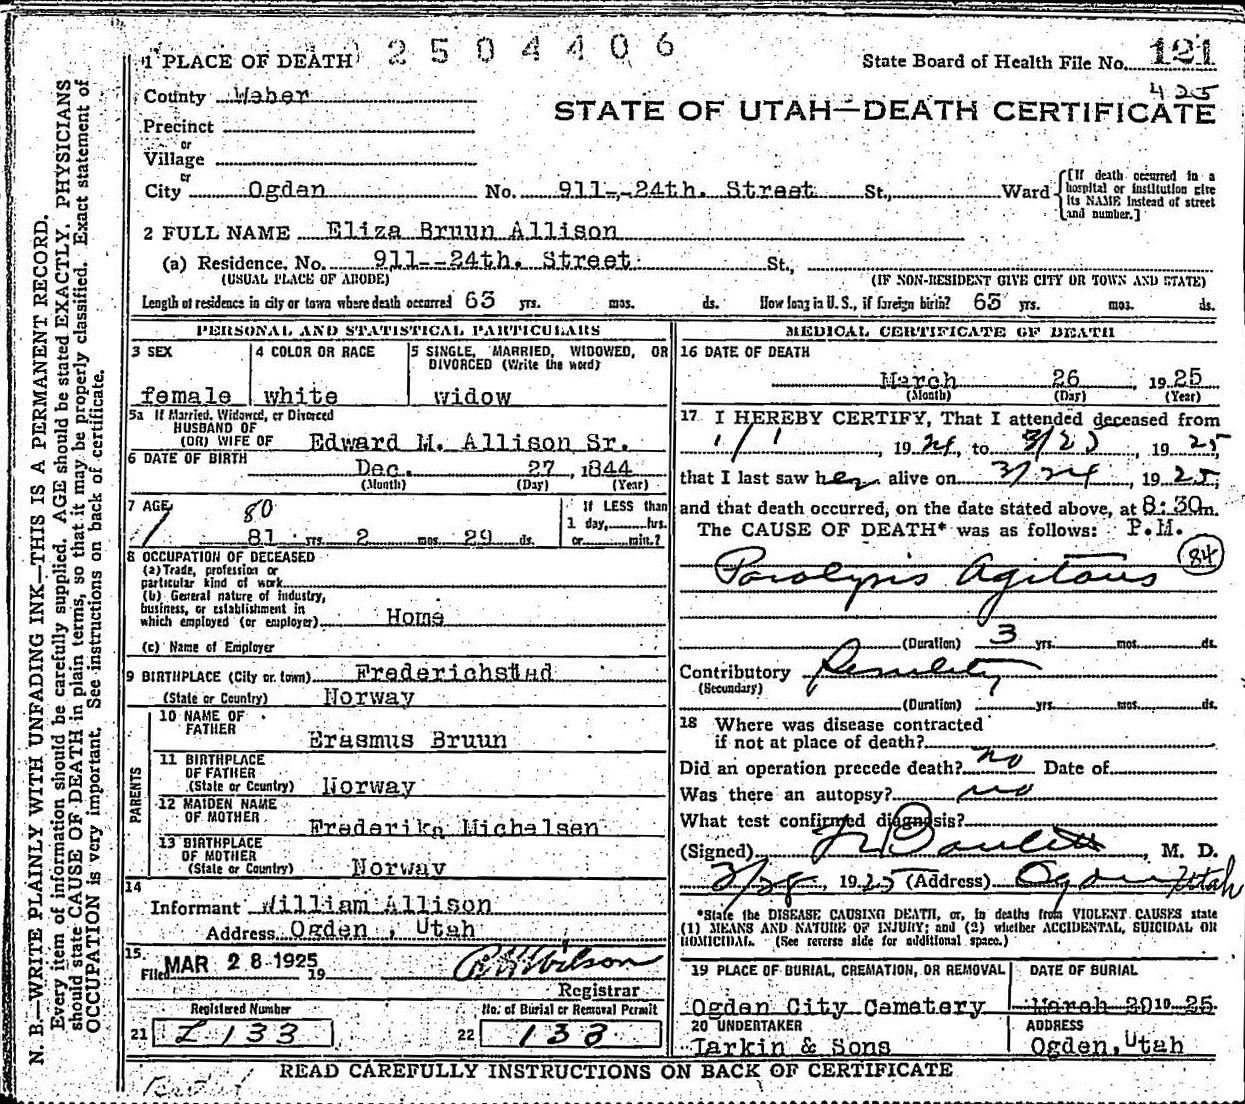 2504406
1 PLACE OF DEATH
State Board of Health File No. 121
425
County Weber
STATE OF UTAH—DEATH CERTIFICATE
Precinct
or
Village
or
City Ogden No. 911--24th. Street St., Ward
[If death occurred in a hospital or institution give its NAME instead of street and number.]
2 FULL NAME Eliza Bruun Allison
(a) Residence. No. 911--24th. Street St.,
(USUAL PLACE OF ABODE) (IF NON-RESIDENT GIVE CITY OR TOWN AND STATE)
Length of residence in city or town where death occurred 63 yrs. mos. ds. How long in U. S., if foreign birth? 63 yrs. mos. ds.
PERSONAL AND STATISTICAL PARTICULARS
3 SEX
female
4 COLOR OR RACE
white
5 SINGLE, MARRIED, WIDOWED, OR DIVORCED (Write the word)
widow
5a If Married, Widowed, or Divorced
HUSBAND OF
(OR) WIFE OF Edward M. Allison Sr.
6 DATE OF BIRTH Dec. 27, 1844
(Month) (Day) (Year)
7 AGE 80
81 yrs. 2 mos. 29 ds.
If LESS than
1 day,......hrs.
or......min.?
8 OCCUPATION OF DECEASED
(a) Trade, profession or
particular kind of work
(b) General nature of industry,
business, or establishment in
which employed (or employer) Home
(c) Name of Employer
9 BIRTHPLACE (City or town) Frederichstad
(State or Country) Norway
PARENTS
10 NAME OF
FATHER
Erasmus Bruun
11 BIRTHPLACE
OF FATHER
(State or Country) Norway
12 MAIDEN NAME
OF MOTHER
Frederika Michalsen
13 BIRTHPLACE
OF MOTHER
(State or Country) Norway
14
Informant William Allison
Address Ogden, Utah
15.
Filed MAR 28 1925 19
Wilson
Registrar
Registered Number
21 Z 133
No. of Burial or Removal Permit
22 133
MEDICAL CERTIFICATE OF DEATH
16 DATE OF DEATH
March 26, 1925
(Month) (Day) (Year)
17 I HEREBY CERTIFY, That I attended deceased from
1/1, 1924, to 3/25, 1925
that I last saw her alive on 3/24, 1925,
and that death occurred, on the date stated above, at 8:30m.
The CAUSE OF DEATH* was as follows: P.M.
Paralysis Agitans 84
(Duration) 3 yrs. mos. ds.
Contributory Senility
(Secondary)
(Duration) yrs. mos. ds.
18 Where was disease contracted
if not at place of death?
Did an operation precede death? no Date of
Was there an autopsy? no
What test confirmed diagnosis?
(Signed) , M. D.
3/28, 1925 (Address) Ogden Utah
*State the DISEASE CAUSING DEATH, or, in deaths from VIOLENT CAUSES state
(1) MEANS AND NATURE OF INJURY; and (2) whether ACCIDENTAL, SUICIDAL OR
HOMICIDAL. (See reverse side for additional space.)
19 PLACE OF BURIAL, CREMATION, OR REMOVAL
Ogden City Cemetery
DATE OF BURIAL
March 1925
20 UNDERTAKER
Larkin & Sons
ADDRESS
Ogden, Utah
READ CAREFULLY INSTRUCTIONS ON BACK OF CERTIFICATE
N. B.—WRITE PLAINLY WITH UNFADING INK—THIS IS A PERMANENT RECORD.
Every item of information should be carefully supplied. AGE should be stated EXACTLY. PHYSICIANS
should state CAUSE OF DEATH in plain terms, so that it may be properly classified. Exact statement of
OCCUPATION is very important. See instructions on back of certificate.